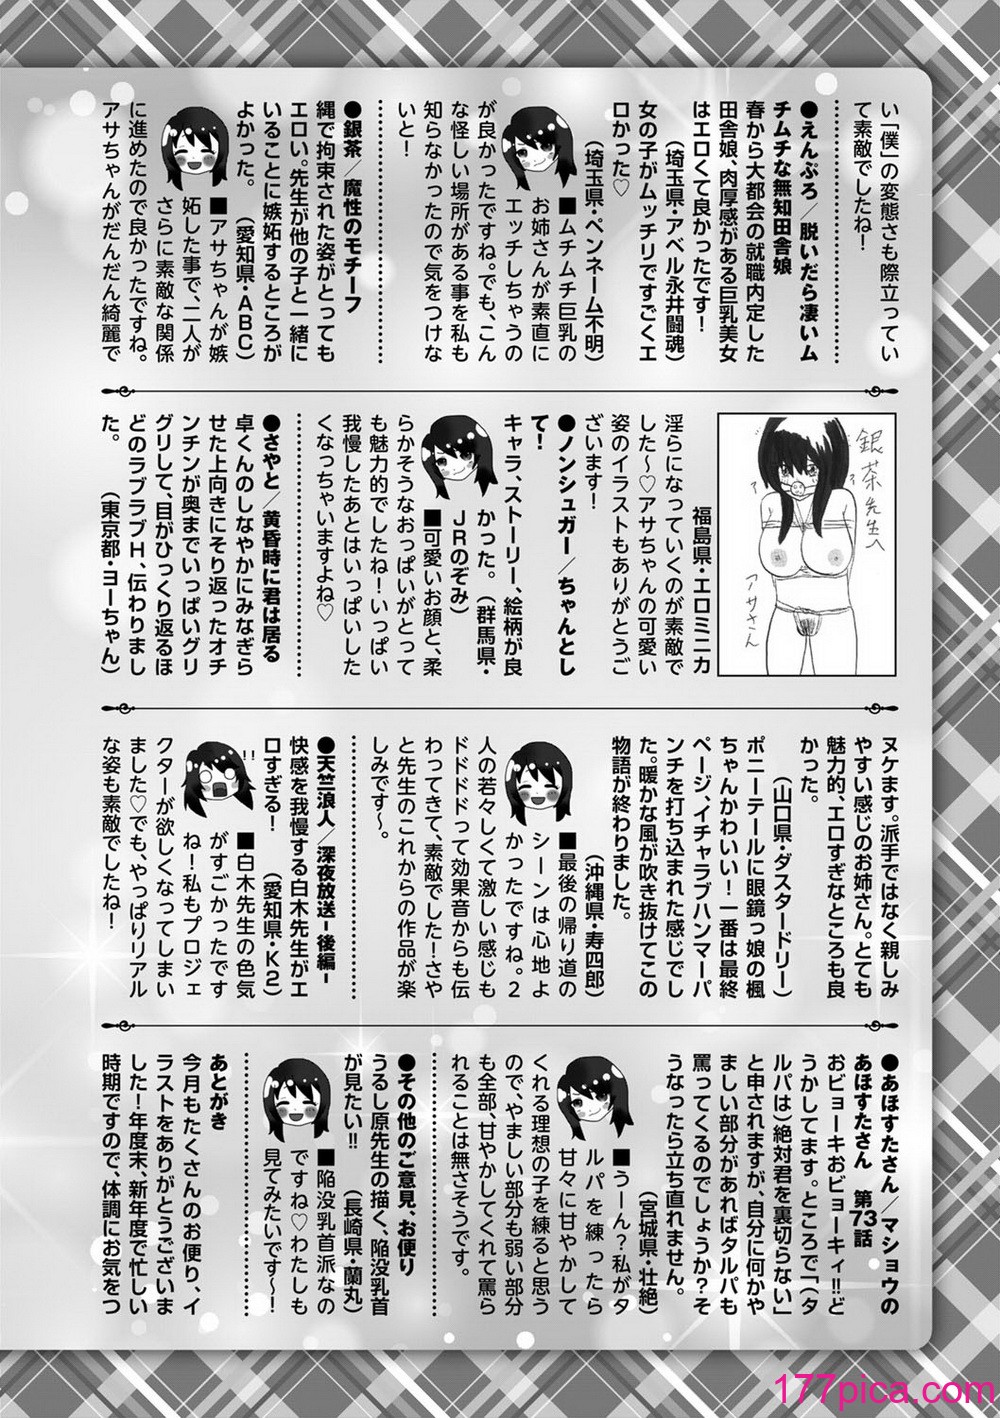 い「僕」の変態さも際立ってい
て素敵でしたね！
●えんぷろ／脱いだら凄いム
チムチな無知田舎娘
春から大都会の就職内定した
田舎娘、肉厚感がある巨乳美女
はエロくて良かったです！
（埼玉県・アベル永井闘魂）
女の子がムッチリですごくエ
ロかった♡
（埼玉県・ペンネーム不明）
■ムチムチ巨乳の
お姉さんが素直に
エッチしちゃうの
が良かったですね。でも、こん
な怪しい場所がある事を私も
知らなかったので気をつけな
いと！
●銀茶／魔性のモチーフ
縄で拘束された姿がとっても
エロい。先生が他の子と一緒に
いることに嫉妬するところが
よかった。　（愛知県・ＡＢＣ）
■アサちゃんが嫉
妬した事で、二人が
さらに素敵な関係
に進めたので良かったですね。
アサちゃんがだんだん綺麗で
銀茶先生へ
アサさん
福島県・エロミニカ
淫らになっていくのが素敵で
した〜♡アサちゃんの可愛い
姿のイラストもありがとうご
ざいます！
●ノンシュガー／ちゃんとし
て！
キャラ、ストーリー、絵柄が良
かった。（群馬県・
ＪＲのぞみ）
■可愛いお顔と、柔
らかそうなおっぱいがとって
も魅力的でしたね！いっぱい
我慢したあとはいっぱいした
くなっちゃいますよね♡
●さやと／黄昏時に君は居る
卓くんのしなやかにみなぎら
せた上向きにそり返ったオチ
ンチンが奥までいっぱいグリ
グリして、目がひっくり返るほ
どのラブラブＨ、伝わりまし
た。　（東京都・ヨーちゃん）
ヌケます。派手ではなく親しみ
やすい感じのお姉さん。とても
魅力的、エロすぎなところも良
かった。
（山口県・ダスタードリー）
ポニーテールに眼鏡っ娘の楓
ちゃんかわいい！一番は最終
ページ、イチャラブハンマーパ
ンチを打ち込まれた感じでし
た。暖かな風が吹き抜けてこの
物語が終わりました。
（沖縄県・寿四郎）
■最後の帰り道の
シーンは心地よ
かったですね。２
人の若々しくて激しい感じも
ドドドドって効果音からも伝
わってきて、素敵でした！さや
と先生のこれからの作品が楽
しみです〜。
●天竺浪人／深夜放送‐後編‐
快感を我慢する白木先生がエ
ロすぎる！　（愛知県・Ｋ２）
!!
■白木先生の色気
がすごかったです
ね！私もプロジェ
クターが欲しくなってしまい
ました♡でも、やっぱりリアル
な姿も素敵でしたね！
●あほすたさん／マショウの
あほすたさん　第73話
おビョーキおビョーキィ!!ど
うかしてます。ところで「（タ
ルパは）絶対君を裏切らない」
と申されますが、自分に何かや
ましい部分があればタルパも
罵ってくるのでしょうか？そ
うなったら立ち直れません。
（宮城県・壮絶）
■うーん？私がタ
ルパを練ったら
甘々に甘やかして
くれる理想の子を練ると思う
ので、やましい部分も弱い部分
も全部、甘やかしてくれて罵ら
れることは無さそうです。
●その他のご意見、お便り
うるし原先生の描く、陥没乳首
が見たい!!　（長崎県・蘭丸）
■陥没乳首派なの
ですね♡わたしも
見てみたいです〜！
あとがき
今月もたくさんのお便り、イ
ラストをありがとうございま
した！年度末、新年度で忙しい
時期ですので、体調にお気をつ
177pica.com